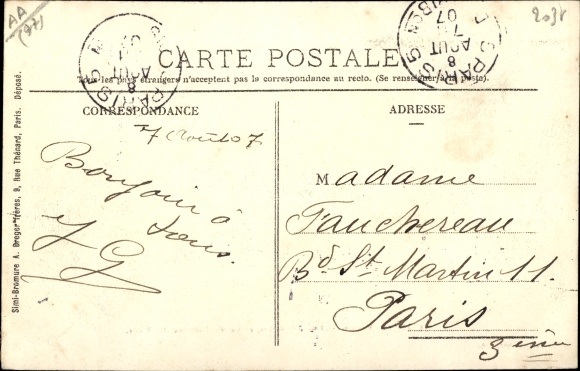 AA
(97)
2038
CARTE POSTALE
Tous les pays étrangers n'acceptent pas la correspondance au recto. (Se renseigner à la poste).
CORRESPONDANCE
7 Août 07
Bonjour à
tous.
ADRESSE
Madame
Fauchereau
Bd St Martin 11.
Paris
3ème
Simi-Bromure A. Breger frères, 9, Rue Thénard, Paris. Déposé.
PARIS
8
AOUT
PARIS
8
AOUT
07